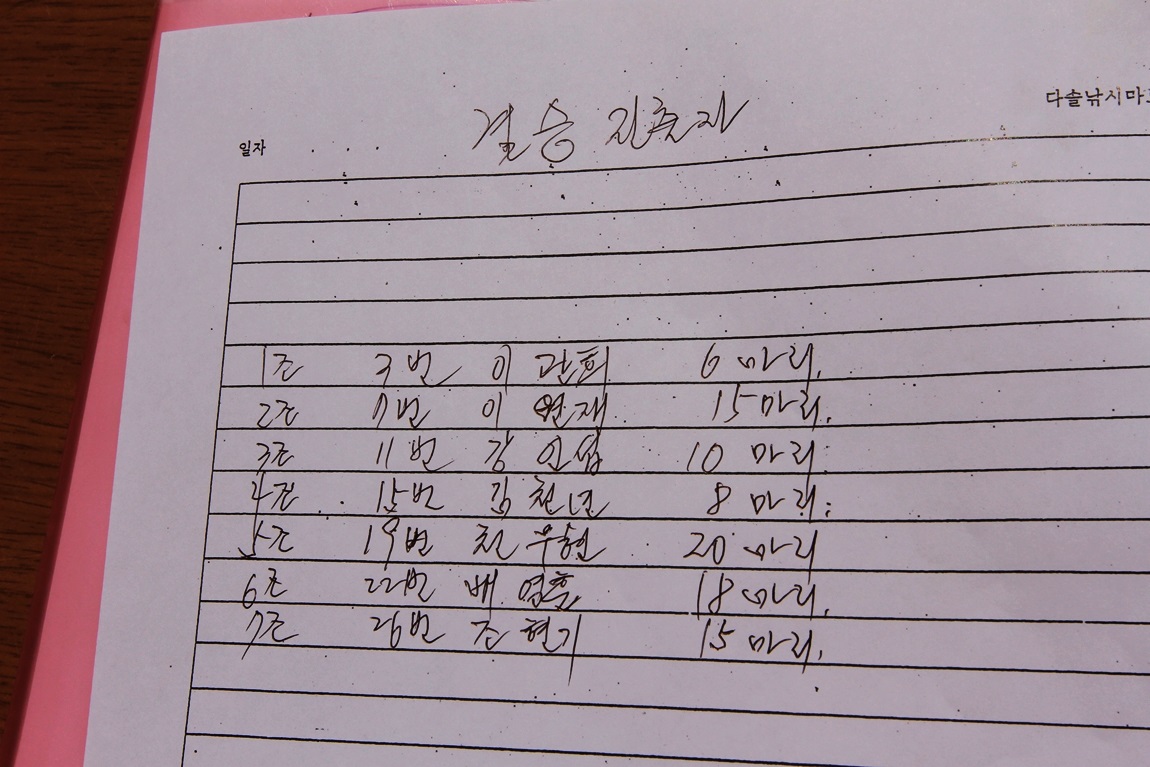 다솔낚시마
결승 진출자
일자
1조 3번 이관희 6마리.
2조 7번 이원재 15마리.
3조 11번 강인섭 10마리.
4조 15번 김천년 8마리.
5조 19번 천우현 20마리
6조 22번 배영훈 18마리.
7조 26번 조현기 15마리.